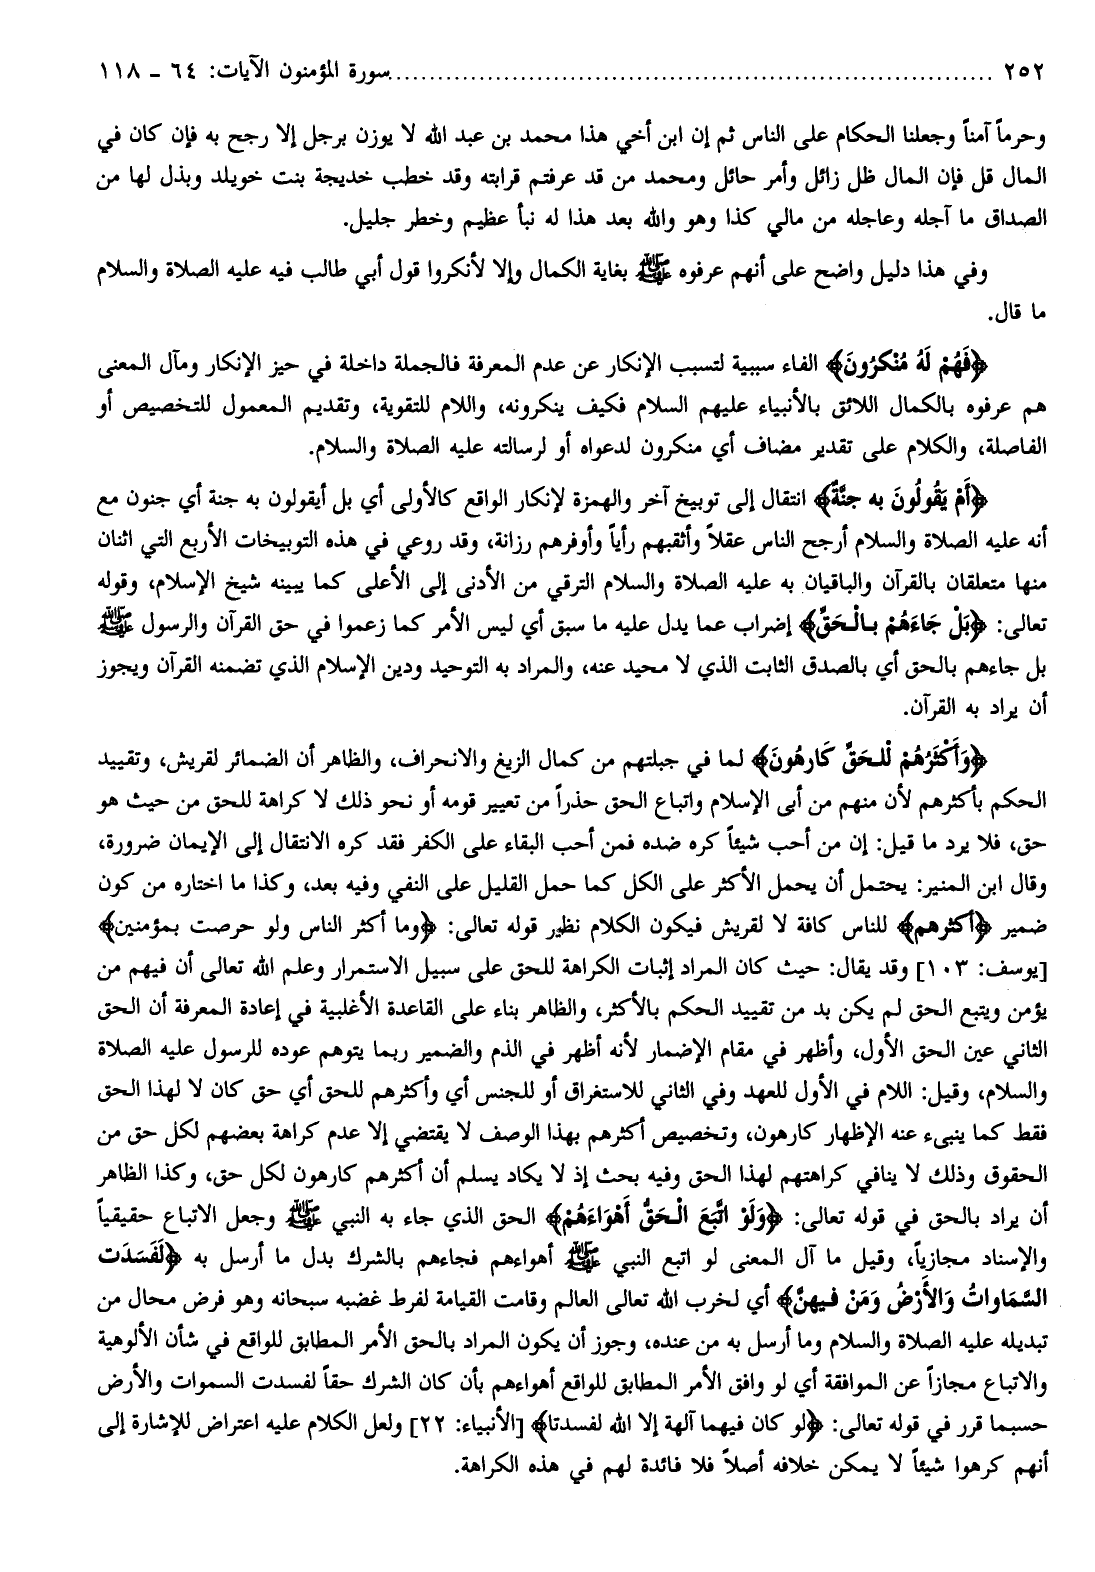 ٢٥٢ ........................................................................ سورة المؤمنون الآيات: ٦٤ ـ ١١٨
وحرماً آمناً وجعلنا الحكام على الناس ثم إن ابن أخي هذا محمد بن عبد الله لا يوزن برجل إلا رجح به فإن كان في
المال قل فإن المال ظل زائل وأمر حائل ومحمد من قد عرفتم قرابته وقد خطب خديجة بنت خويلد وبذل لها من
الصداق ما آجله وعاجله من مالي كذا وهو والله بعد هذا له نبأ عظيم وخطر جليل.
وفي هذا دليل واضح على أنهم عرفوه ﷺ بغاية الكمال وإلا لأنكروا قول أبي طالب فيه عليه الصلاة والسلام
ما قال.
﴿فَهُمْ لَهُ مُنْكِرُونَ﴾ الفاء سببية لتسبب الإنكار عن عدم المعرفة فالجملة داخلة في حيز الإنكار ومآل المعنى
هم عرفوه بالكمال اللائق بالأنبياء عليهم السلام فكيف ينكرونه، واللام للتقوية، وتقديم المعمول للتخصيص أو
الفاصلة، والكلام على تقدير مضاف أي منكرون لدعواه أو لرسالته عليه الصلاة والسلام.
﴿أَمْ يَقُولُونَ به جنَّةٌ﴾ انتقال إلى توبيخ آخر والهمزة لإنكار الواقع كالأولى أي بل أيقولون به جنة أي جنون مع
أنه عليه الصلاة والسلام أرجح الناس عقلاً وأثقبهم رأياً وأوفرهم رزانة، وقد روعي في هذه التوبيخات الأربع التي اثنان
منها متعلقان بالقرآن والباقيان به عليه الصلاة والسلام الترقي من الأدنى إلى الأعلى كما يبينه شيخ الإسلام، وقوله
تعالى: ﴿بَلْ جَاءَهُمْ بـالْـحَقِّ﴾ إضراب عما يدل عليه ما سبق أي ليس الأمر كما زعموا في حق القرآن والرسول ﷺ
بل جاءهم بالحق أي بالصدق الثابت الذي لا محيد عنه، والمراد به التوحيد ودين الإسلام الذي تضمنه القرآن ويجوز
أن يراد به القرآن.
﴿وَأَكْثَرُهُمْ لْلـحَقِّ كَارهُونَ﴾ لما في جبلتهم من كمال الزيغ والانحراف، والظاهر أن الضمائر لقريش، وتقييد
الحكم بأكثرهم لأن منهم من أبى الإسلام واتباع الحق حذراً من تعيير قومه أو نحو ذلك لا كراهة للحق من حيث هو
حق، فلا يرد ما قيل: إن من أحب شيئاً كره ضده فمن أحب البقاء على الكفر فقد كره الانتقال إلى الإيمان ضرورة،
وقال ابن المنير: يحتمل أن يحمل الأكثر على الكل كما حمل القليل على النفي وفيه بعد، وكذا ما اختاره من كون
ضمير ﴿أكثرهم﴾ للناس كافة لا لقريش فيكون الكلام نظير قوله تعالى: ﴿وما أكثر الناس ولو حرصت بمؤمنين﴾
[يوسف: ١٠٣] وقد يقال: حيث كان المراد إثبات الكراهة للحق على سبيل الاستمرار وعلم الله تعالى أن فيهم من
يؤمن ويتبع الحق لم يكن بد من تقييد الحكم بالأكثر، والظاهر بناء على القاعدة الأغلبية في إعادة المعرفة أن الحق
الثاني عين الحق الأول، وأظهر في مقام الإضمار لأنه أظهر في الذم والضمير ربما يتوهم عوده للرسول عليه الصلاة
والسلام، وقيل: اللام في الأول للعهد وفي الثاني للاستغراق أو للجنس أي وأكثرهم للحق أي حق كان لا لهذا الحق
فقط كما ينبىء عنه الإظهار كارهون، وتخصيص أكثرهم بهذا الوصف لا يقتضي إلا عدم كراهة بعضهم لكل حق من
الحقوق وذلك لا ينافي كراهتهم لهذا الحق وفيه بحث إذ لا يكاد يسلم أن أكثرهم كارهون لكل حق، وكذا الظاهر
أن يراد بالحق في قوله تعالى: ﴿وَلَوْ اتَّبَعَ الْـحَقُّ أَهْوَاءَهُمْ﴾ الحق الذي جاء به النبي ﷺ وجعل الاتباع حقيقياً
والإسناد مجازياً، وقيل ما آل المعنى لو اتبع النبي ﷺ أهواءهم فجاءهم بالشرك بدل ما أرسل به ﴿لَفَسَدَت
السَّمَاواتُ وَالأَرْضُ وَمَنْ فـيهنَّ﴾ أي لخرب الله تعالى العالم وقامت القيامة لفرط غضبه سبحانه وهو فرض محال من
تبديله عليه الصلاة والسلام وما أرسل به من عنده، وجوز أن يكون المراد بالحق الأمر المطابق للواقع في شأن الألوهية
والاتباع مجازاً عن الموافقة أي لو وافق الأمر المطابق للواقع أهواءهم بأن كان الشرك حقاً لفسدت السموات والأرض
حسبما قرر في قوله تعالى: ﴿لو كان فيهما آلهة إلا الله لفسدتا﴾ [الأنبياء: ٢٢] ولعل الكلام عليه اعتراض للإشارة إلى
أنهم كرهوا شيئاً لا يمكن خلافه أصلاً فلا فائدة لهم في هذه الكراهة.